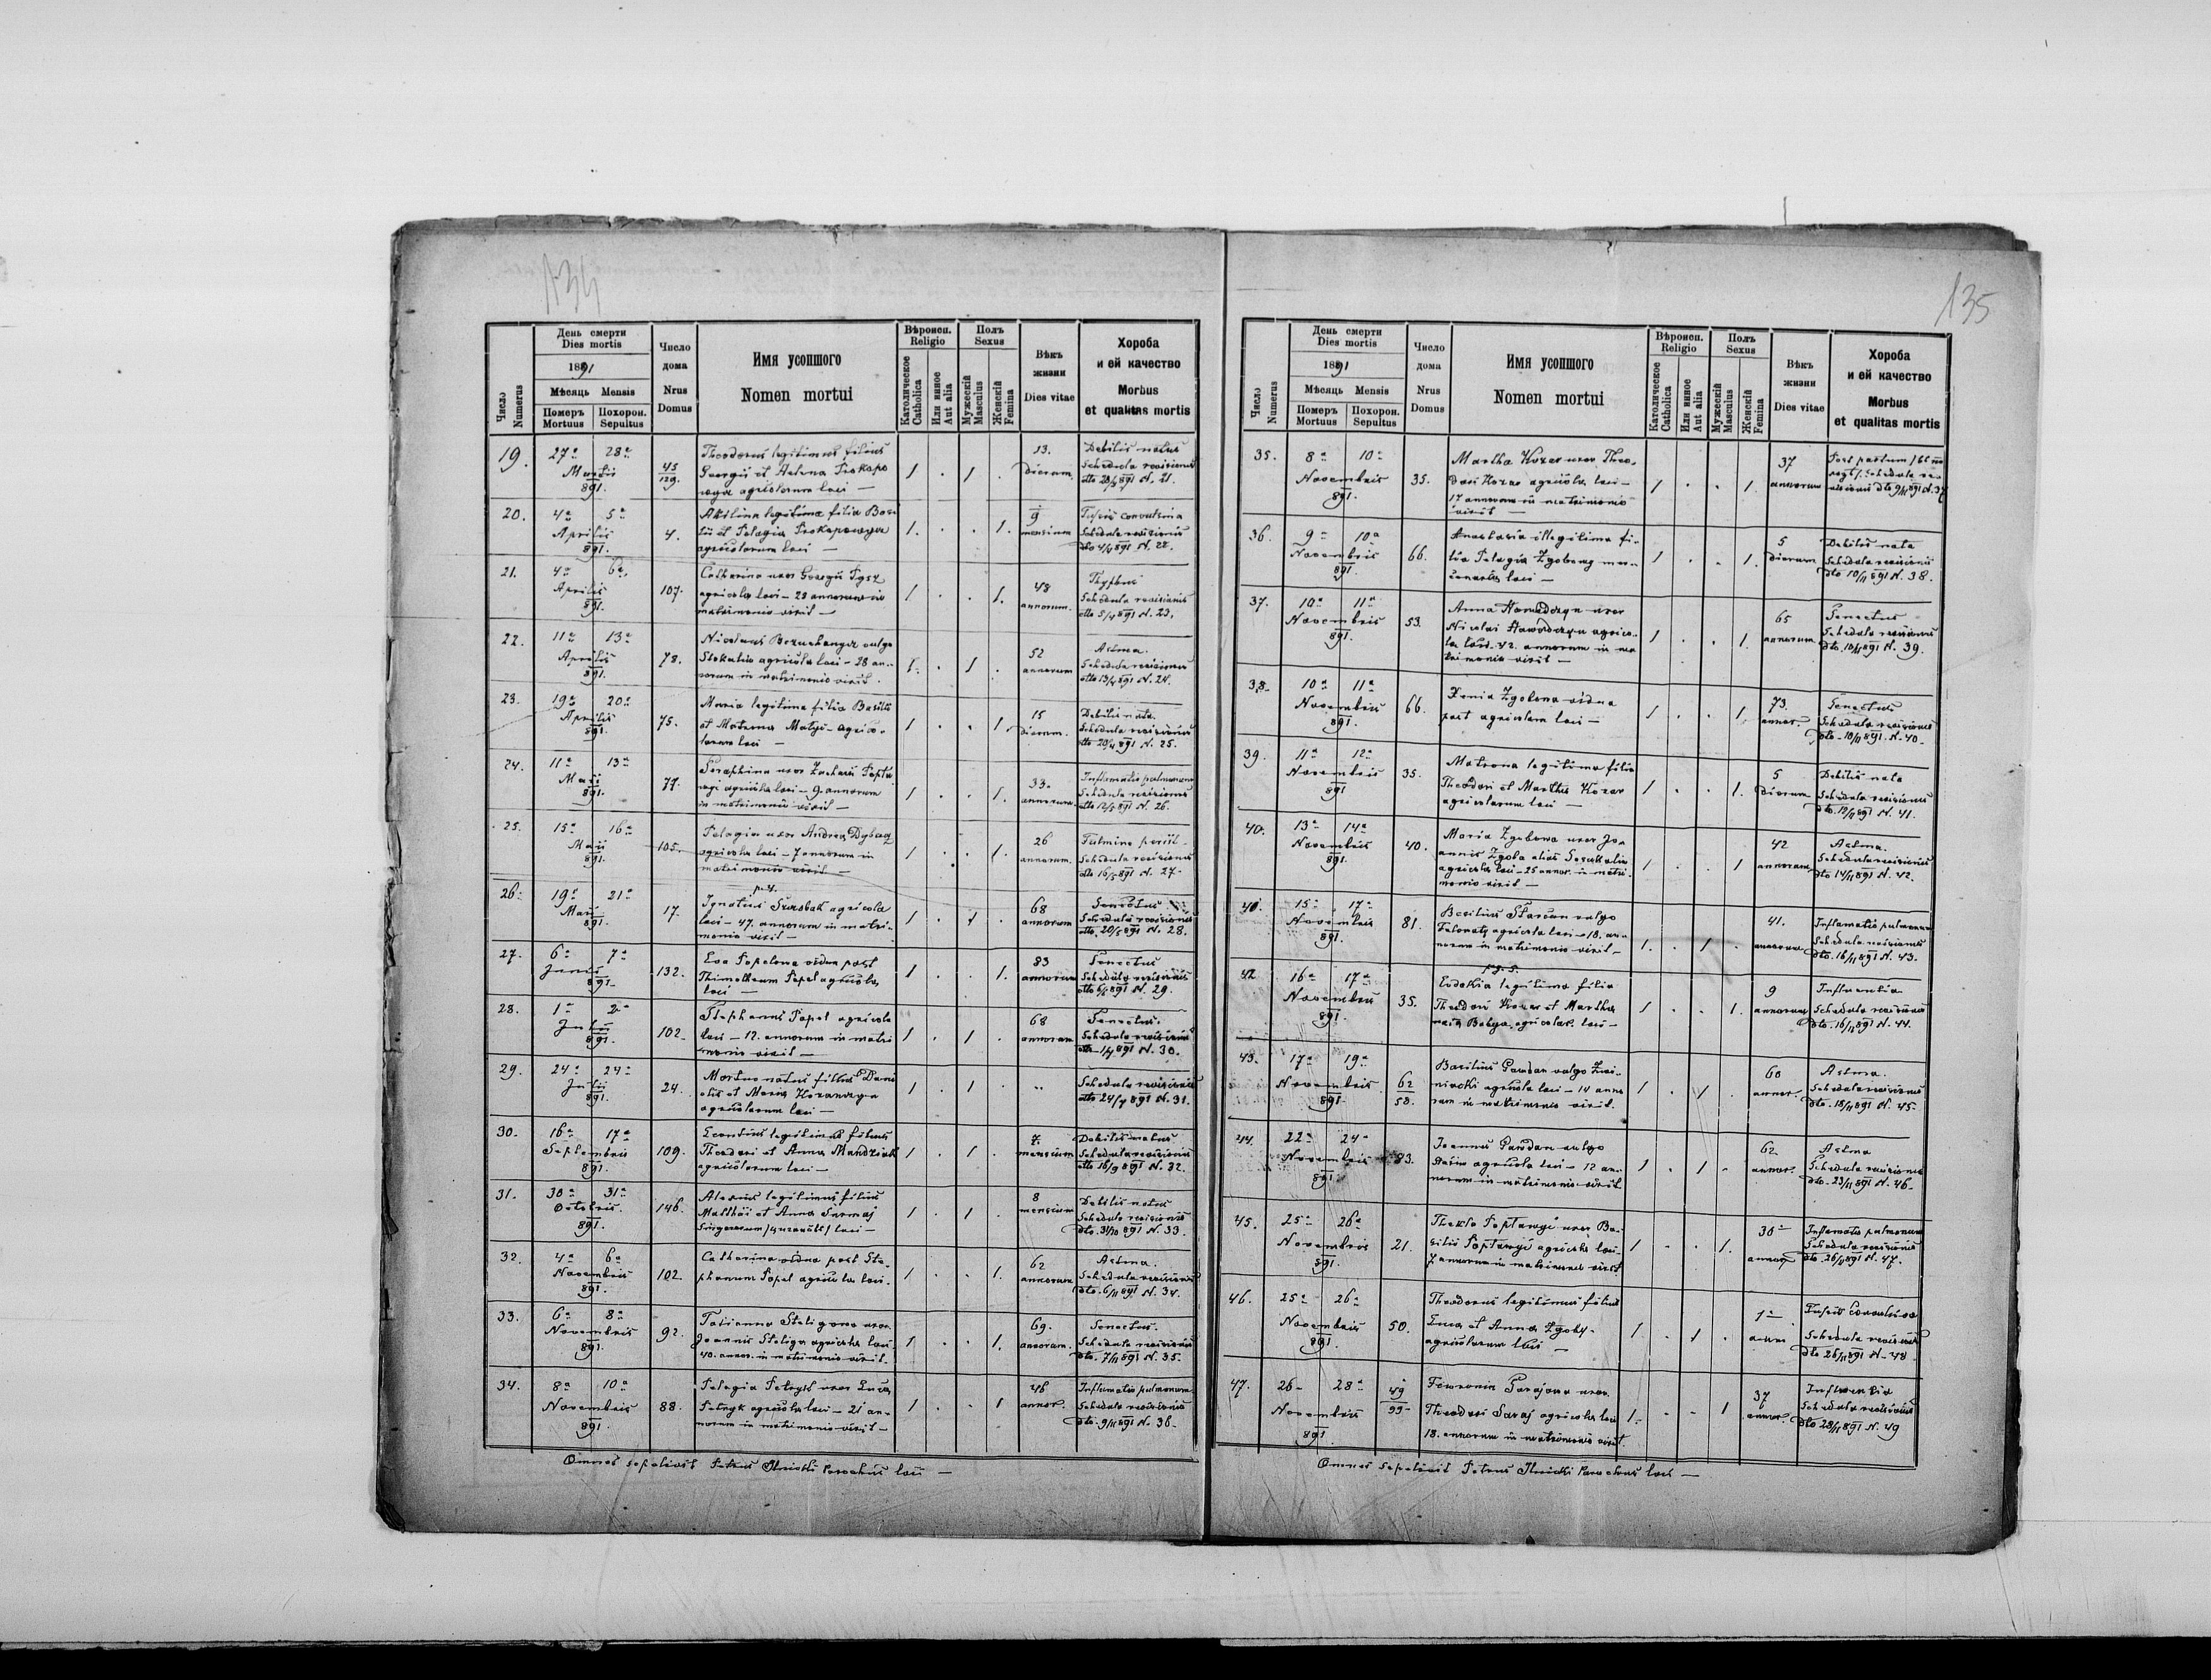 134
День смерти
Dies mortis
1891
Мѣсяць Mensis
Померъ Похорон.
Mortuus Sepultus
Число
Numerus
Число
дома
Nrus
Domus
Имя усопшого
Nomen mortui
Вѣроисп.
Religio
Католическое
Catholica
Или инное
Aut alia
Полъ
Sexus
Мужескій
Masculus
Женскій
Femina
Вѣкъ
жизни
Dies vitae
Хороба
и ей качество
Morbus
et qualitas mortis
19. 27a 28a Martii 891. 45/129.
Theodorus legitimus filius
Georgii et Helena Prokopo
agricolarum loci —
1 . 1 .
13. dierum.
Debilis natus
Schedula revisionis
dto 28/3 891 N. 21.
20. 4a 5a Aprilis 891. 4.
Akilina legitima filia Basi
lii et Pelagia Prokopowycz
agricolarum loci —
1. . . 1.
9 mensium
Tussis convulsiva
Schedula revisionis
dto 4/4 891 N. 22.
21. 4a 6a Aprilis 891. 107.
Catharina uxor Georgii Pysz
agricola loci — 28 annorum in
matrimonio vixit —
1 . . 1.
48 annorum.
Thyphus
Schedula revisionis
dto 5/4 891 N. 23.
22. 11a 13a Aprilis 891. 78.
Nicolaus vulgo
agricola loci — 28 an-
norum in matrimonio vixit.
1. . 1 .
52 annorum
Astma.
Schedula revisionis
dto 13/4 891 N. 24.
23. 19a 20a Aprilis 891. 75.
Maria legitima filia Basilii
et Matrona Matyi — agrico-
larum loci —
1 . . 1.
15 dierum.
Debilis nata.
Schedula revisionis
dto 20/4 891 N. 25.
24. 11a 13a Maii 891. 77.
Seraphina uxor Zachari
agricola loci — 9. annorum
in matrimonio vixit —
1 . . 1.
33. annorum.
Inflamatio pulmonum
Schedula revisionis
dto 12/5 891 N. 26.
25. 15a 16a Maii 891. 105.
Pelagia uxor Andrea Dybacz
agricola loci — 7 annorum in
matrimonio vixit —
1 . . 1.
26 annorum.
Fulmine periit —
Schedula revisionis
dto 16/5 891 N. 27.
26. 19a 21a Maii 891. 17.
Ignatius agricola
loci — 47. annorum in matri-
monio vixit —
1 . 1 .
68 annorum
Senectus.
Schedula revisionis
dto. 20/5 891 N. 28.
27. 6a 7a Junii 891. 132.
Eva Popelowa vidua post
Thimotheum Popel agricola
loci —
1 . . 1.
83 annorum
Senectus
Schedula revisionis
dto 6/6 891 N. 29.
28. 1a 2a Julii 891. 102.
Stephanus Popel agricola
loci — 12. annorum in matri
monio vixit —
1 . 1 .
68 annorum
Senectus.
Schedula revisionis
dto 1/7 891 N. 30.
29. 24a 24a Julii 891. 24.
Mortuo natus filius Dani
elis et Maria
agricolarum loci —
1 . 1 .
"
Schedula revisionis
dto 24/7 891 N. 31.
30. 16a 17a Septembris 891. 109.
Leontius legitimus filius
Theodori et Anna Mandziak
agricolarum loci —
1 . 1 .
7. mensium
Debilis natus
Schedula revisionis
dto 16/9 891 N. 32.
31. 30a 31a Octobris 891. 146.
Alexius legitimus filius
Matthäi et Anna Surmaj
loci —
1 . 1 .
8 mensium
Debilis natus
Schedula revisionis
dto. 31/10 891 N. 33.
32. 4a 6a Novembris 891. 102.
Catharina vidua post Ste-
phanum Popel agricola loci.
1 . . 1.
62 annorum
Astma.
Schedula revisionis
dto. 6/11 891 N. 34.
33. 6a 8a Novembris 891. 92.
Tatianna Steligowa uxor
Joannis Steliga agricola loci
40. annor. in matrimonio vixit.
1 . . 1.
69. annorum.
Senectus.
Schedula revisionis
dto. 7/11 891 N. 35.
34. 8a 10a Novembris 891. 88.
Pelagia Petryk uxor Luca
Petryk agricola loci — 21 an-
norum in matrimonio vixit —
1 . . 1
46 annor.
Inflamatio pulmonum
Schedula revisionis
dto. 9/11 891 N. 36.
Omnes sepelivit Petrus Ilnicki Parochus loci —
135
День смерти
Dies mortis
1891
Мѣсяць Mensis
Померъ Похорон.
Mortuus Sepultus
Число
Numerus
Число
дома
Nrus
Domus
Имя усопшого
Nomen mortui
Вѣроисп.
Religio
Католическое
Catholica
Или инное
Aut alia
Полъ
Sexus
Мужескій
Masculus
Женскій
Femina
Вѣкъ
жизни
Dies vitae
Хороба
и ей качество
Morbus
et qualitas mortis
35. 8a 10a Novembris 891. 35.
Martha Kozar uxor Theo-
dori Kozar agricola loci —
17 annorum in matrimonio
vixit —
1 . . 1.
37 annorum
Post partum
Schedula re-
visionis dto 9/11 891 N. 37
36. 9a 10a Novembris 891. 66.
Anastasia illegitima fi-
lia Pelagia
loci —
1 . . 1.
5 dierum
Debilis nata
Schedula revisionis
dto 10/11 891 N. 38.
37. 10a 11a Novembris 891. 53.
Anna uxor
Nicolai agrico-
la loci. 42. annorum in ma
trimonio vixit —
1 . . 1.
65 annorum.
Senectus
Schedula revisionis
dto. 10/11 891 N. 39.
38. 10a 11a Novembris 891. 66.
Xenia Zgobowa vidua
post agricolam loci —
1 . . 1.
73. annor.
Senectus
Schedula revisionis
dto — 10/11 891. N. 40 —
39. 11a 12a Novembris 891 35.
Matrona legitima filia
Theodori et Martha Kozar
agricolarum loci —
1 . . 1.
5 dierum
Debilis nata
Schedula revisionis
dto. 12/11 891 N. 41.
40. 13a 14a Novembris 891. 40.
Maria Zgobowa uxor Jo-
annis Zgoba alias
agricola loci — 25 annor. in matri-
monio vixit —
1 . . 1
42 annorum
Astma.
Schedula revisionis
dto 14/11 891 N. 42.
40. 15a 17a Novembris 891. 81.
Basilius vulgo
agricola loci — 18. an-
norum in matrimonio vixit —
1. . 1 .
41. annorum
Inflamatio pulmonum
Schedula revisionis
dto. 16/11 891 N. 43.
42. 16a 17a Novembris 891. 35.
Eudokia legitima filia
Theodori Kozar et Martha
nata agricolar. loci —
1 . . 1.
9 annorum
Influenzia
Schedula revisionis
dto. 16/11 891 N. 44.
43. 17a 19a Novembris 891. 62/58.
Basilius Pawdan vulgo
agricola loci — 14 anno
rum in matrimonio vixit.
1 . 1 .
60 annor.
Astma.
Schedula revisionis
dto. 18/11 891 N. 45 —
44. 22a 24a Novembris 891. 83.
Joannes Pawdan vulgo
agricola loci — 12 an-
norum in matrimonio vixit
1 . 1 .
62. annor.
Astma
Schedula revisionis
dto. 23/11 891 N. 46 —
45. 25a 26a Novembris 891. 21.
Thekla uxor Ba-
silii agricola loci —
7 annorum in matrimonio vixit
1 . . 1.
30 annor.
Inflamatio pulmonum
Schedula revisionis
dto. 26/11 891 N. 47.
46. 25a 26a Novembris 891. 50.
Theodorus legitimus filius
Luca et Anna Zgoby —
agricolarum loci —
1 . 1 .
1 anni
Tussis convulsiva
Schedula revisionis
dto 26/11 891 N. 48
47. 26 — 28a Novembris 891. 49/99
Fewronia Sarajowa uxor
Theodori Saraj agricola loci
18. annorum in matrimonio vixit.
1. . . 1
37 annor.
Influenzia
Schedula revisionis
dto 28/11 891 N. 49
Omnes sepelivit Petrus Ilnicki Parochus loci —